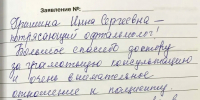 Заявление №:
Ирина Сергеевна –
потрясающий офтальмолог!
Большое спасибо доктору
за грамотную консультацию
и очень внимательное
отношение к пациенту